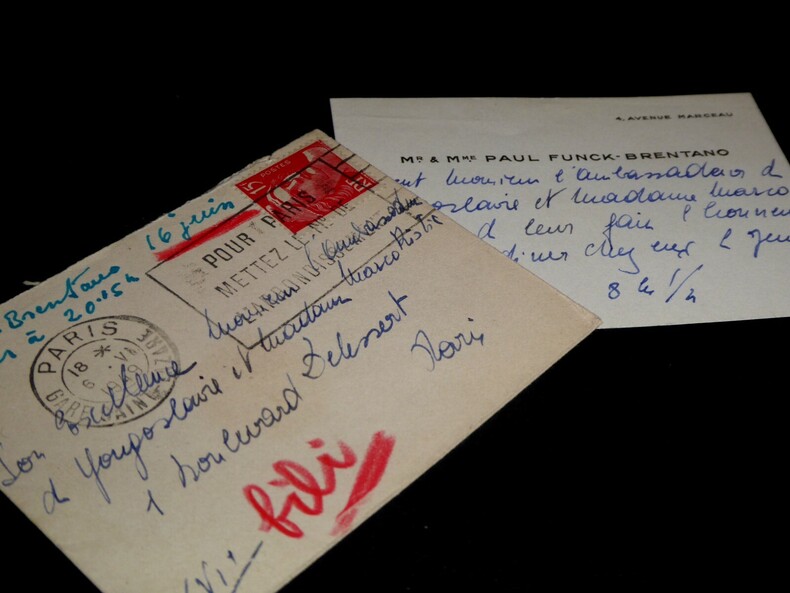 16 juin
Brentano
à 20.15h
POSTES
15
POUR PARIS
METTEZ LE N° DE
L'ARRONDISSEMENT
PARIS
18 *
6 · VI
GARE ST LAZARE
Son Excellence Monsieur l'Ambassadeur
de Yougoslavie et Madame Marco Ristic
1 boulevard Delessert
Paris
bili
4, AVENUE MARCEAU
MR & MME PAUL FUNCK-BRENTANO
Monsieur l'Ambassadeur de
et Madame Marco
de leur faire l'honneur
dîner chez eux le
8 h 1/2